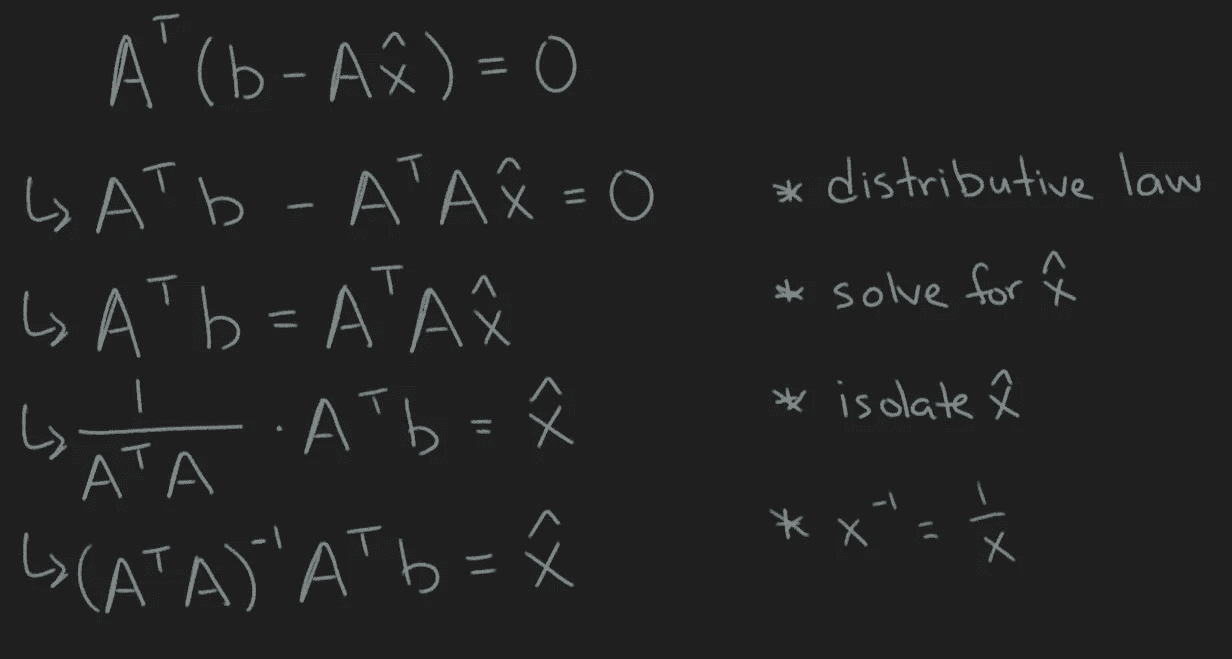 Aᵀ(b - Ax̂) = 0
↳ Aᵀb - AᵀAx̂ = 0 * distributive law
↳ Aᵀb = AᵀAx̂ * solve for x̂
↳ 1/(AᵀA) · Aᵀb = x̂ * isolate x̂
↳ (AᵀA)⁻¹Aᵀb = x̂ * x⁻¹ = 1/x